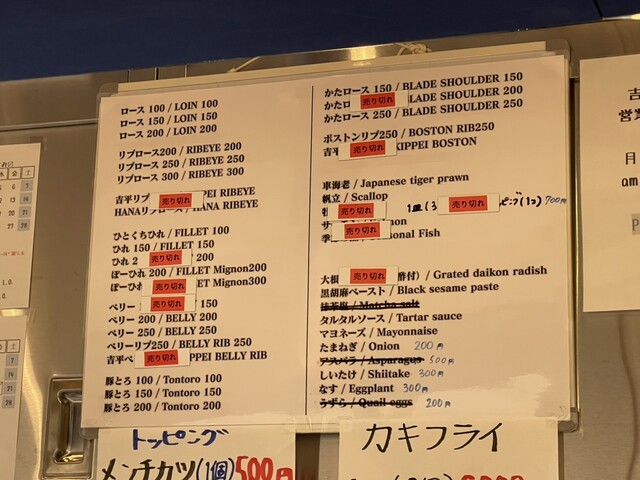 ロース 100 / LOIN 100
ロース 150 / LOIN 150
ロース 200 / LOIN 200
リブロース200 / RIBEYE 200
リブロース 250 / RIBEYE 250
リブロース 300 / RIBEYE 300
吉平リブ 売り切れ PEI RIBEYE
HANAリブロース / HANA RIBEYE
ひとくちひれ / FILLET 100
ひれ 150 / FILLET 150
ひれ 2 売り切れ 200
ぽーひれ 200 / FILLET Mignon200
ぽーひれ 売り切れ FILLET Mignon300
ベリー 売り切れ 150
ベリー 200 / BELLY 200
ベリー 250 / BELLY 250
ベリーリブ250 / BELLY RIB 250
吉平ベ 売り切れ PPEI BELLY RIB
豚とろ 100 / Tontoro 100
豚とろ 150 / Tontoro 150
豚とろ 200 / Tontoro 200
かたロース 150 / BLADE SHOULDER 150
かたロ 売り切れ LADE SHOULDER 200
かたロース 250 / BLADE SHOULDER 250
ボストンリブ250 / BOSTON RIB250
吉平 売り切れ KIPPEI BOSTON
車海老 / Japanese tiger prawn
帆立 / Scallop
売り切れ 1皿(3 売り切れ ピング(1コ) 700円
サ 売り切れ mon
季 ional Fish
大根 売り切れ 酢付) / Grated daikon radish
黒胡麻ペースト / Black sesame paste
抹茶塩 / Matcha salt
タルタルソース / Tartar sauce
マヨネーズ / Mayonnaise
たまねぎ / Onion 200円
アスパラ / Asparagus 500円
しいたけ / Shiitake 300円
なす / Eggplant 300円
うずら / Quail eggs 200円
トッピング
メンチカツ(1個)500円
カキフライ
吉
営業
月
am